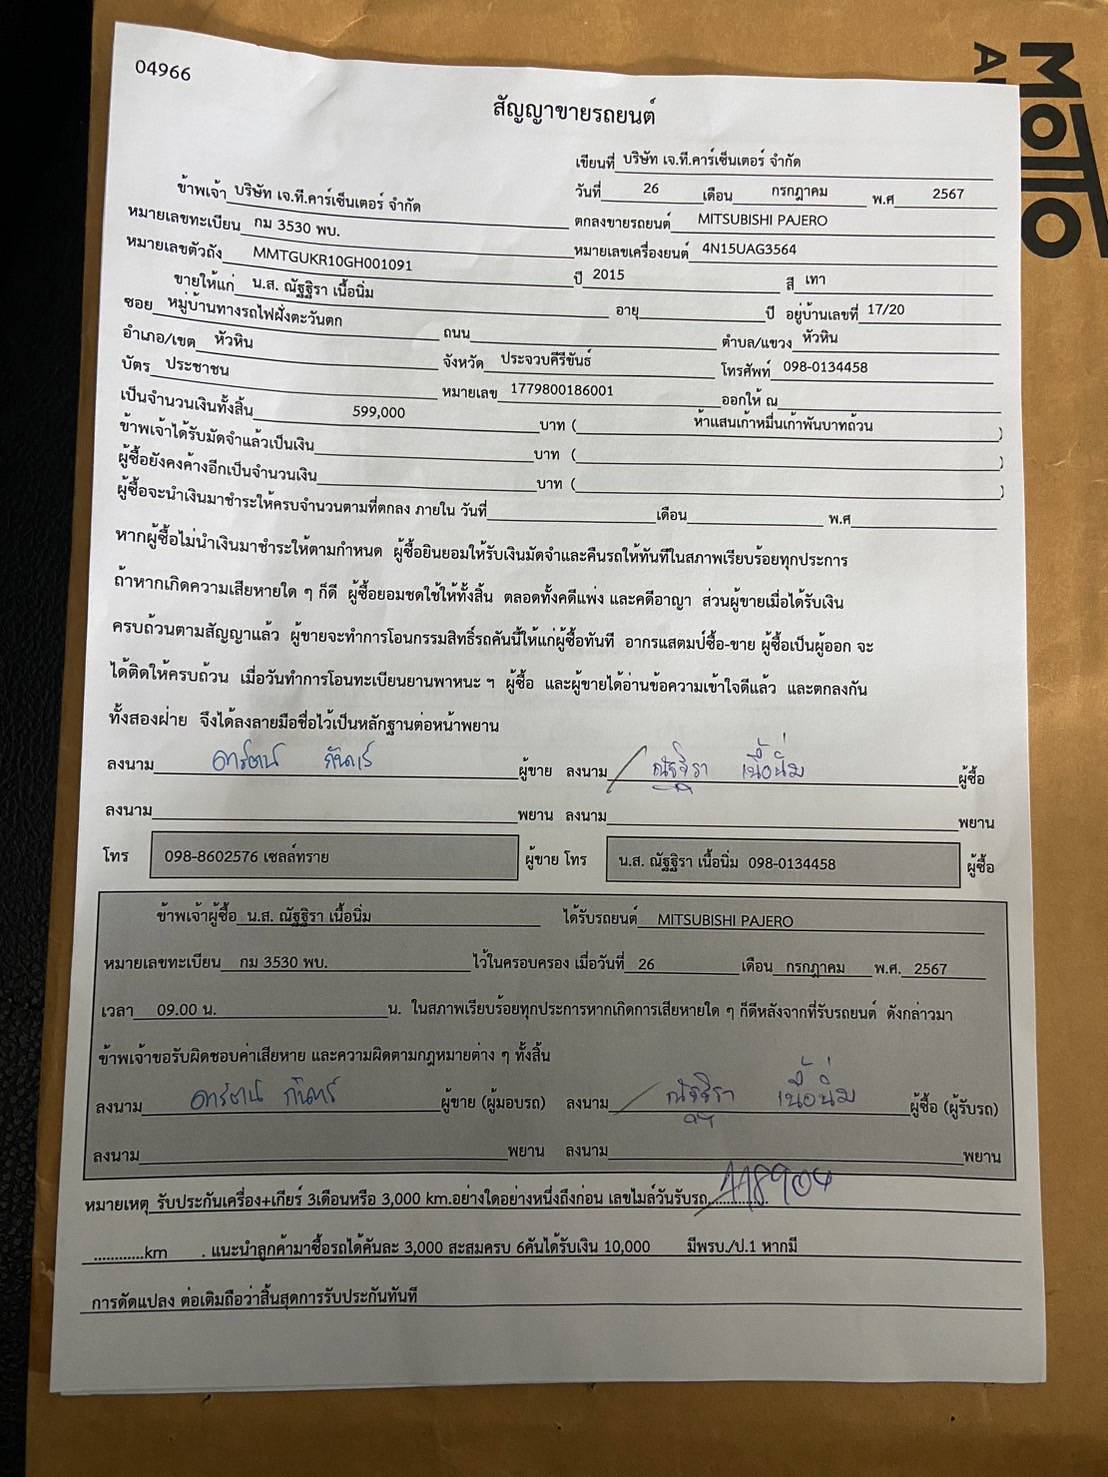 04966
สัญญาขายรถยนต์
เขียนที่ บริษัท เจ.ที.คาร์เซ็นเตอร์ จำกัด
ข้าพเจ้า บริษัท เจ.ที.คาร์เซ็นเตอร์ จำกัด วันที่ 26 เดือน กรกฎาคม พ.ศ 2567
หมายเลขทะเบียน กม 3530 พบ. ตกลงขายรถยนต์ MITSUBISHI PAJERO
หมายเลขตัวถัง MMTGUKR10GH001091 หมายเลขเครื่องยนต์ 4N15UAG3564
ขายให้แก่ น.ส. ณัฐฐิรา เนื้อนิ่ม ปี 2015 สี เทา
ซอย หมู่บ้านทางรถไฟฝั่งตะวันตก อายุ ปี อยู่บ้านเลขที่ 17/20
อำเภอ/เขต หัวหิน ถนน ตำบล/แขวง หัวหิน
บัตร ประชาชน จังหวัด ประจวบคีรีขันธ์ โทรศัพท์ 098-0134458
หมายเลข 1779800186001 ออกให้ ณ
เป็นจำนวนเงินทั้งสิ้น 599,000 บาท ( ห้าแสนเก้าหมื่นเก้าพันบาทถ้วน )
ข้าพเจ้าได้รับมัดจำแล้วเป็นเงิน บาท ( )
ผู้ซื้อยังคงค้างอีกเป็นจำนวนเงิน บาท ( )
ผู้ซื้อจะนำเงินมาชำระให้ครบจำนวนตามที่ตกลง ภายใน วันที่ เดือน พ.ศ
หากผู้ซื้อไม่นำเงินมาชำระให้ตามกำหนด ผู้ซื้อยินยอมให้รับเงินมัดจำและคืนรถให้ทันทีในสภาพเรียบร้อยทุกประการ
ถ้าหากเกิดความเสียหายใด ๆ ก็ดี ผู้ซื้อยอมชดใช้ให้ทั้งสิ้น ตลอดทั้งคดีแพ่ง และคดีอาญา ส่วนผู้ขายเมื่อได้รับเงิน
ครบถ้วนตามสัญญาแล้ว ผู้ขายจะทำการโอนกรรมสิทธิ์รถคันนี้ให้แก่ผู้ซื้อทันที อากรแสตมป์ซื้อ-ขาย ผู้ซื้อเป็นผู้ออก จะ
ได้ติดให้ครบถ้วน เมื่อวันทำการโอนทะเบียนยานพาหนะ ฯ ผู้ซื้อ และผู้ขายได้อ่านข้อความเข้าใจดีแล้ว และตกลงกัน
ทั้งสองฝ่าย จึงได้ลงลายมือชื่อไว้เป็นหลักฐานต่อหน้าพยาน
ลงนาม ผู้ขาย ลงนาม ณัฐฐิรา เนื้อนิ่ม ผู้ซื้อ
ลงนาม พยาน ลงนาม พยาน
โทร 098-8602576 เซลล์ทราย ผู้ขาย โทร น.ส. ณัฐฐิรา เนื้อนิ่ม 098-0134458 ผู้ซื้อ
ข้าพเจ้าผู้ซื้อ น.ส. ณัฐฐิรา เนื้อนิ่ม ได้รับรถยนต์ MITSUBISHI PAJERO
หมายเลขทะเบียน กม 3530 พบ. ไว้ในครอบครอง เมื่อวันที่ 26 เดือน กรกฎาคม พ.ศ. 2567
เวลา 09.00 น. น. ในสภาพเรียบร้อยทุกประการหากเกิดการเสียหายใด ๆ ก็ดีหลังจากที่รับรถยนต์ ดังกล่าวมา
ข้าพเจ้าขอรับผิดชอบค่าเสียหาย และความผิดตามกฎหมายต่าง ๆ ทั้งสิ้น
ลงนาม ผู้ขาย (ผู้มอบรถ) ลงนาม ณัฐฐิรา เนื้อนิ่ม ผู้ซื้อ (ผู้รับรถ)
ลงนาม พยาน ลงนาม พยาน
หมายเหตุ รับประกันเครื่อง+เกียร์ 3เดือนหรือ 3,000 km.อย่างใดอย่างหนึ่งถึงก่อน เลขไมล์วันรับรถ 118904
............km . แนะนำลูกค้ามาซื้อรถได้คันละ 3,000 สะสมครบ 6คันได้รับเงิน 10,000 มีพรบ./ป.1 หากมี
การดัดแปลง ต่อเติมถือว่าสิ้นสุดการรับประกันทันที
MOTTO